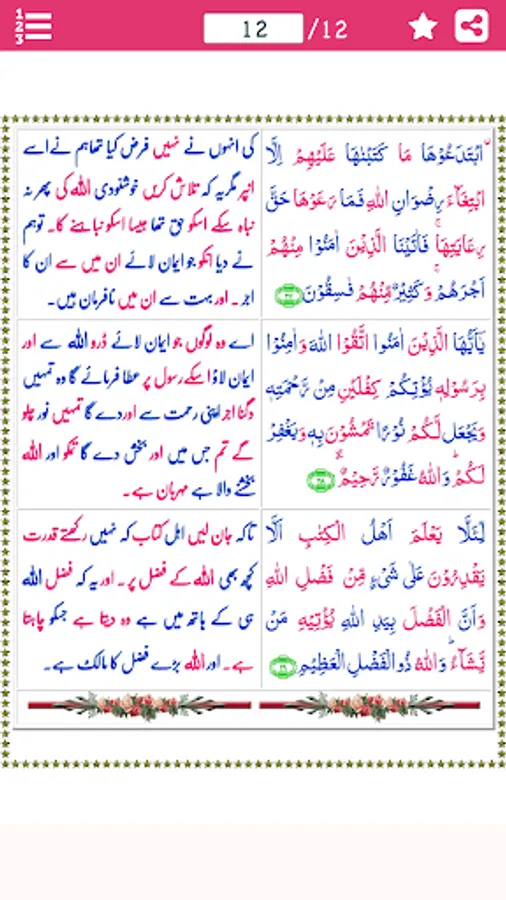 1
2
3
12 /12
ابْتَدَعُوْهَا مَا كَتَبْنٰهَا عَلَيْهِمْ اِلَّا
ابْتِغَآءَ رِضْوَانِ اللّٰهِ فَمَا رَعَوْهَا حَقَّ
رِعَايَتِهَا ۚ فَاٰتَيْنَا الَّذِيْنَ اٰمَنُوْا مِنْهُمْ
اَجْرَهُمْ ۚ وَكَثِيْرٌ مِّنْهُمْ فٰسِقُوْنَ ۝۲۷
کی انہوں نے نہیں فرض کیا تھا ہم نے اسے
انپر مگر یہ کہ تلاش کریں خوشنودی اللہ کی پھر نہ
نباہ سکے اسکو حق تھا جیسا اسکو نباہنے کا۔ تو ہم
نے دیا انکو جو ایمان لائے ان میں سے ان کا
اجر۔ اور بہت سے ان میں نافرمان ہیں۔
يٰۤاَيُّهَا الَّذِيْنَ اٰمَنُوا اتَّقُوا اللّٰهَ وَاٰمِنُوْا
بِرَسُوْلِهٖ يُؤْتِكُمْ كِفْلَيْنِ مِنْ رَّحْمَتِهٖ
وَيَجْعَلْ لَّكُمْ نُوْرًا تَمْشُوْنَ بِهٖ وَيَغْفِرْ
لَكُمْ ؕ وَاللّٰهُ غَفُوْرٌ رَّحِيْمٌ ۝۲۸
اے وہ لوگوں جو ایمان لائے ڈرو اللہ سے اور
ایمان لاؤ اسکے رسول پر عطا فرمائے گا وہ تمہیں
دگنا اجر اپنی رحمت سے اور دے گا تمہیں نور چلو
گے تم جس میں اور بخش دے گا تمکو اور اللہ
بخشنے والا ہے مہربان ہے۔
لِّئَلَّا يَعْلَمَ اَهْلُ الْكِتٰبِ اَلَّا
يَقْدِرُوْنَ عَلٰى شَىْءٍ مِّنْ فَضْلِ اللّٰهِ
وَاَنَّ الْفَضْلَ بِيَدِ اللّٰهِ يُؤْتِيْهِ مَنْ
يَّشَآءُ ؕ وَاللّٰهُ ذُو الْفَضْلِ الْعَظِيْمِ ۝۲۹
تاکہ جان لیں اہل کتاب کہ نہیں رکھتے قدرت
کچھ بھی اللہ کے فضل پر۔ اور یہ کہ فضل اللہ
ہی کے ہاتھ میں ہے وہ دیتا ہے جسکو چاہتا
ہے۔ اور اللہ بڑے فضل کا مالک ہے۔